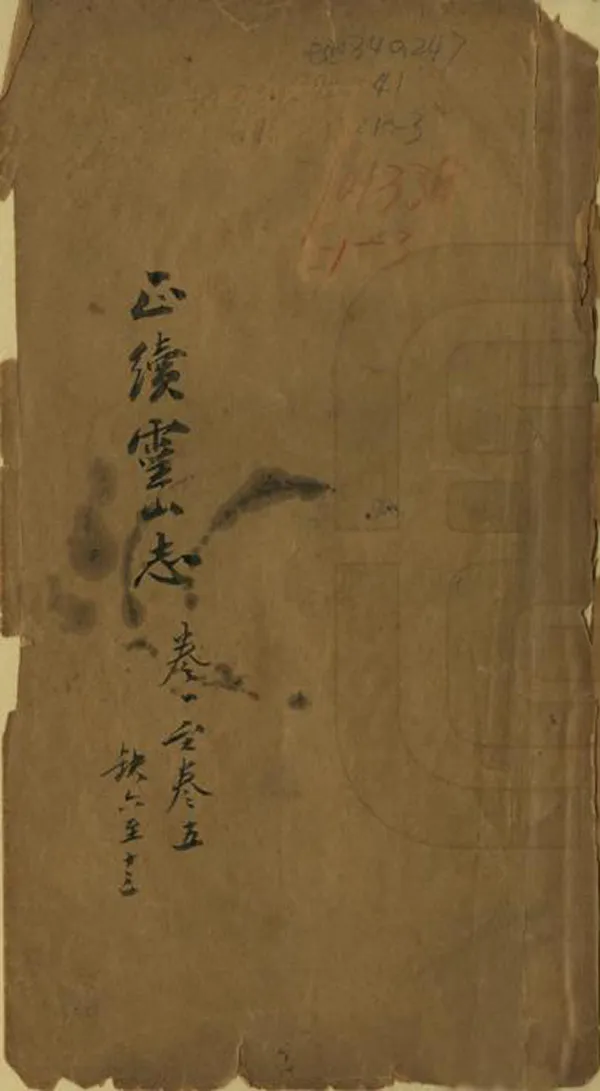 340.247
41
1-3
正續靈山志
卷一至卷五
缺六至十三